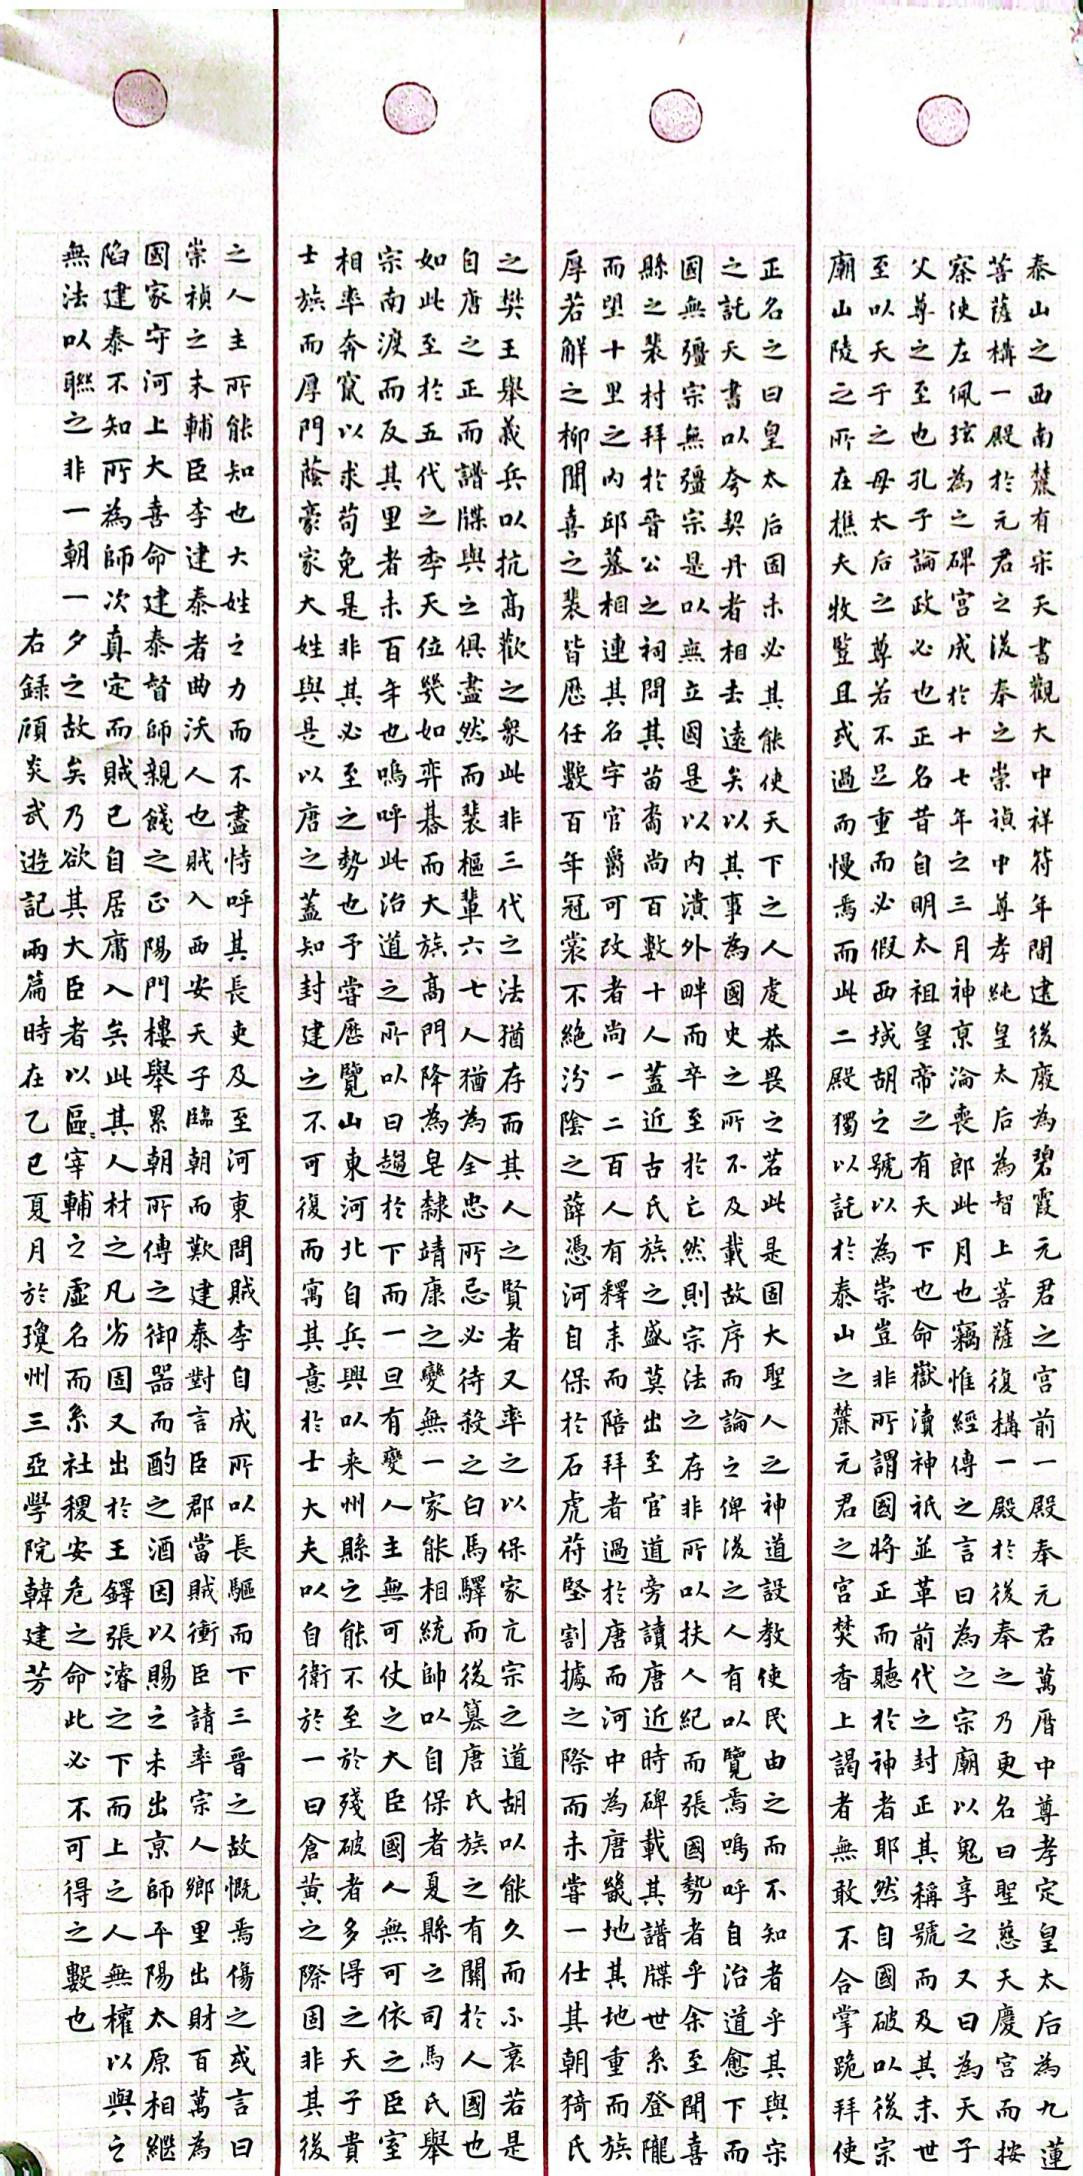 泰山之西南麓有宋天書觀大中祥符年間建後廢為碧霞元君之宮前一殿奉元君萬曆中尊孝定皇太后為九蓮
菩薩構一殿於元君之後奉之崇禎中尊孝純皇太后為智上菩薩復構一殿於後奉之乃更名曰聖慈天慶宮而按
察使左佩玹為之碑宮成於十七年之三月神京淪喪即此月也竊惟經傳之言曰為之宗廟以鬼享之又曰為天子
父尊之至也孔子論政必也正名昔自明太祖皇帝之有天下也命嶽瀆神祇並革前代之封正其稱號而及其末世
至以天子之母太后之尊若不足重而必假西域胡之號以為崇豈非所謂國將正而聽於神者耶然自國破以後宗
廟山陵之所在樵夫牧豎且或過而慢焉而此二殿獨以託於泰山之麓元君之宮焚香上謁者無敢不合掌跪拜使
正名之曰皇太后固未必其能使天下之人虔恭畏之若此是固大聖人之神道設教使民由之而不知者乎其與宋
之託天書以夸契丹者相去遠矣以其事為國史之所不及載故序而論之俾後之人有以覽焉嗚呼自治道愈下而
國無彊宗無彊宗是以無立國是以內潰外畔而卒至於亡然則宗法之存非所以扶人紀而張國勢者乎余至聞喜
縣之裴村拜於晉公之祠問其苗裔尚百數十人蓋近古氏族之盛莫出至官道旁讀唐近時碑載其譜牒世系登隴
而望十里之內邱墓相連其名字官爵可改者尚一二百人有釋耒而陪拜者過於唐而河中為唐畿地其地重而族
厚若解之柳聞喜之裴皆歷任數百年冠裳不絕汾陰之薛憑河自保於石虎苻堅割據之際而未嘗一仕其朝猗氏
之樊王舉義兵以抗高歡之衆此非三代之法猶存而其人之賢者又率之以保家亢宗之道胡以能久而不衰若是
自唐之正而譜牒與之俱盡然而裴樞輩六七人猶為全忠所忌必待殺之白馬驛而後篡唐氏族之有關於人國也
如此至於五代之季天位幾如弈棊而大族高門降為皂隸靖康之變無一家能相統帥以自保者夏縣之司馬氏舉
宗南渡而反其里者未百年也嗚呼此治道之所以曰趨於下而一旦有變人主無可仗之大臣國人無可依之臣室
相率奔竄以求苟免是非其必至之勢也予嘗歷覽山東河北自兵興以來州縣之能不至於殘破者多得之天子貴
士族而厚門蔭豪家大姓與是以唐之蓋知封建之不可復而寓其意於士大夫以自衛於一曰倉黃之際固非其後
之人主所能知也大姓之力而不盡恃呼其長吏及至河東問賊李自成所以長驅而下三晉之故慨焉傷之或言曰
崇禎之末輔臣李建泰者曲沃人也賊入西安天子臨朝而歎建泰對言臣郡當賊衝臣請率宗人鄉里出財百萬為
國家守河上大喜命建泰督師親餞之正陽門樓舉累朝所傳之御器而酌之酒因以賜之未出京師平陽太原相繼
陷建泰不知所為師次真定而賊已自居庸入矣此其人材之凡劣固又出於王鐸張濬之下而上之人無權以與之
無法以聯之非一朝一夕之故矣乃欲其大臣者以區〻宰輔之虛名而系社稷安危之命此必不可得之數也
右錄顧炎武遊記兩篇時在乙巳夏月於瓊州三亞學院韓建芳